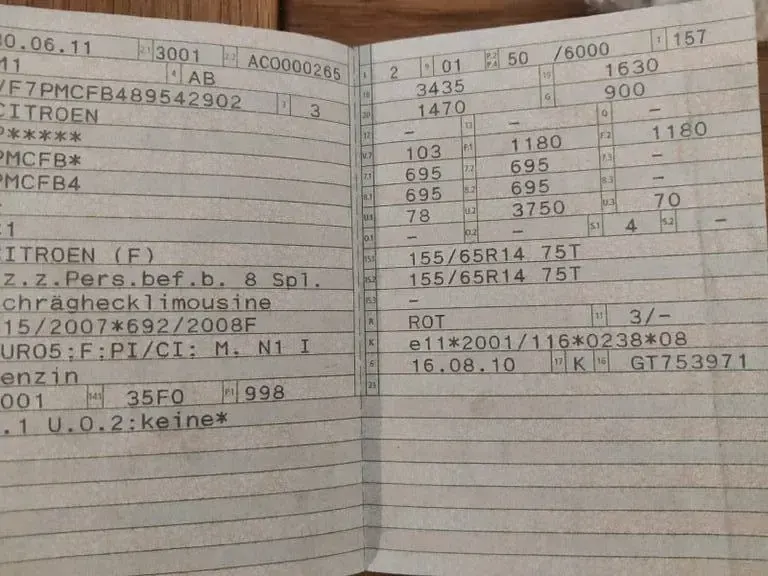 0.06.11 2.1 3001 2.2 AC0000265
M1 4 AB
VF7PMCFB489542902 3 3
CITROEN
P*****
PMCFB*
PMCFB4
C1
CITROEN (F)
z.z.Pers.bef.b. 8 Spl.
chräghecklimousine
15/2007*692/2008F
URO5;F;PI/CI; M. N1 I
enzin
001 14.1 35F0 P.1 998
.1 U.O.2:keine*
L 2 9 01 P.2 P.4 50 /6000 T 157
18 3435 19 1630
20 1470 G 900
12 - 13 - Q -
V.7 103 F.1 1180 F.2 1180
7.1 695 7.2 695 7.3 -
8.1 695 8.2 695 8.3 -
U.1 78 U.2 3750 U.3 70
O.1 - O.2 - S.1 4 S.2 -
15.1 155/65R14 75T
15.2 155/65R14 75T
15.3 -
R ROT 11 3/-
K e11*2001/116*0238*08
6 16.08.10 17 K 16 GT753971
23